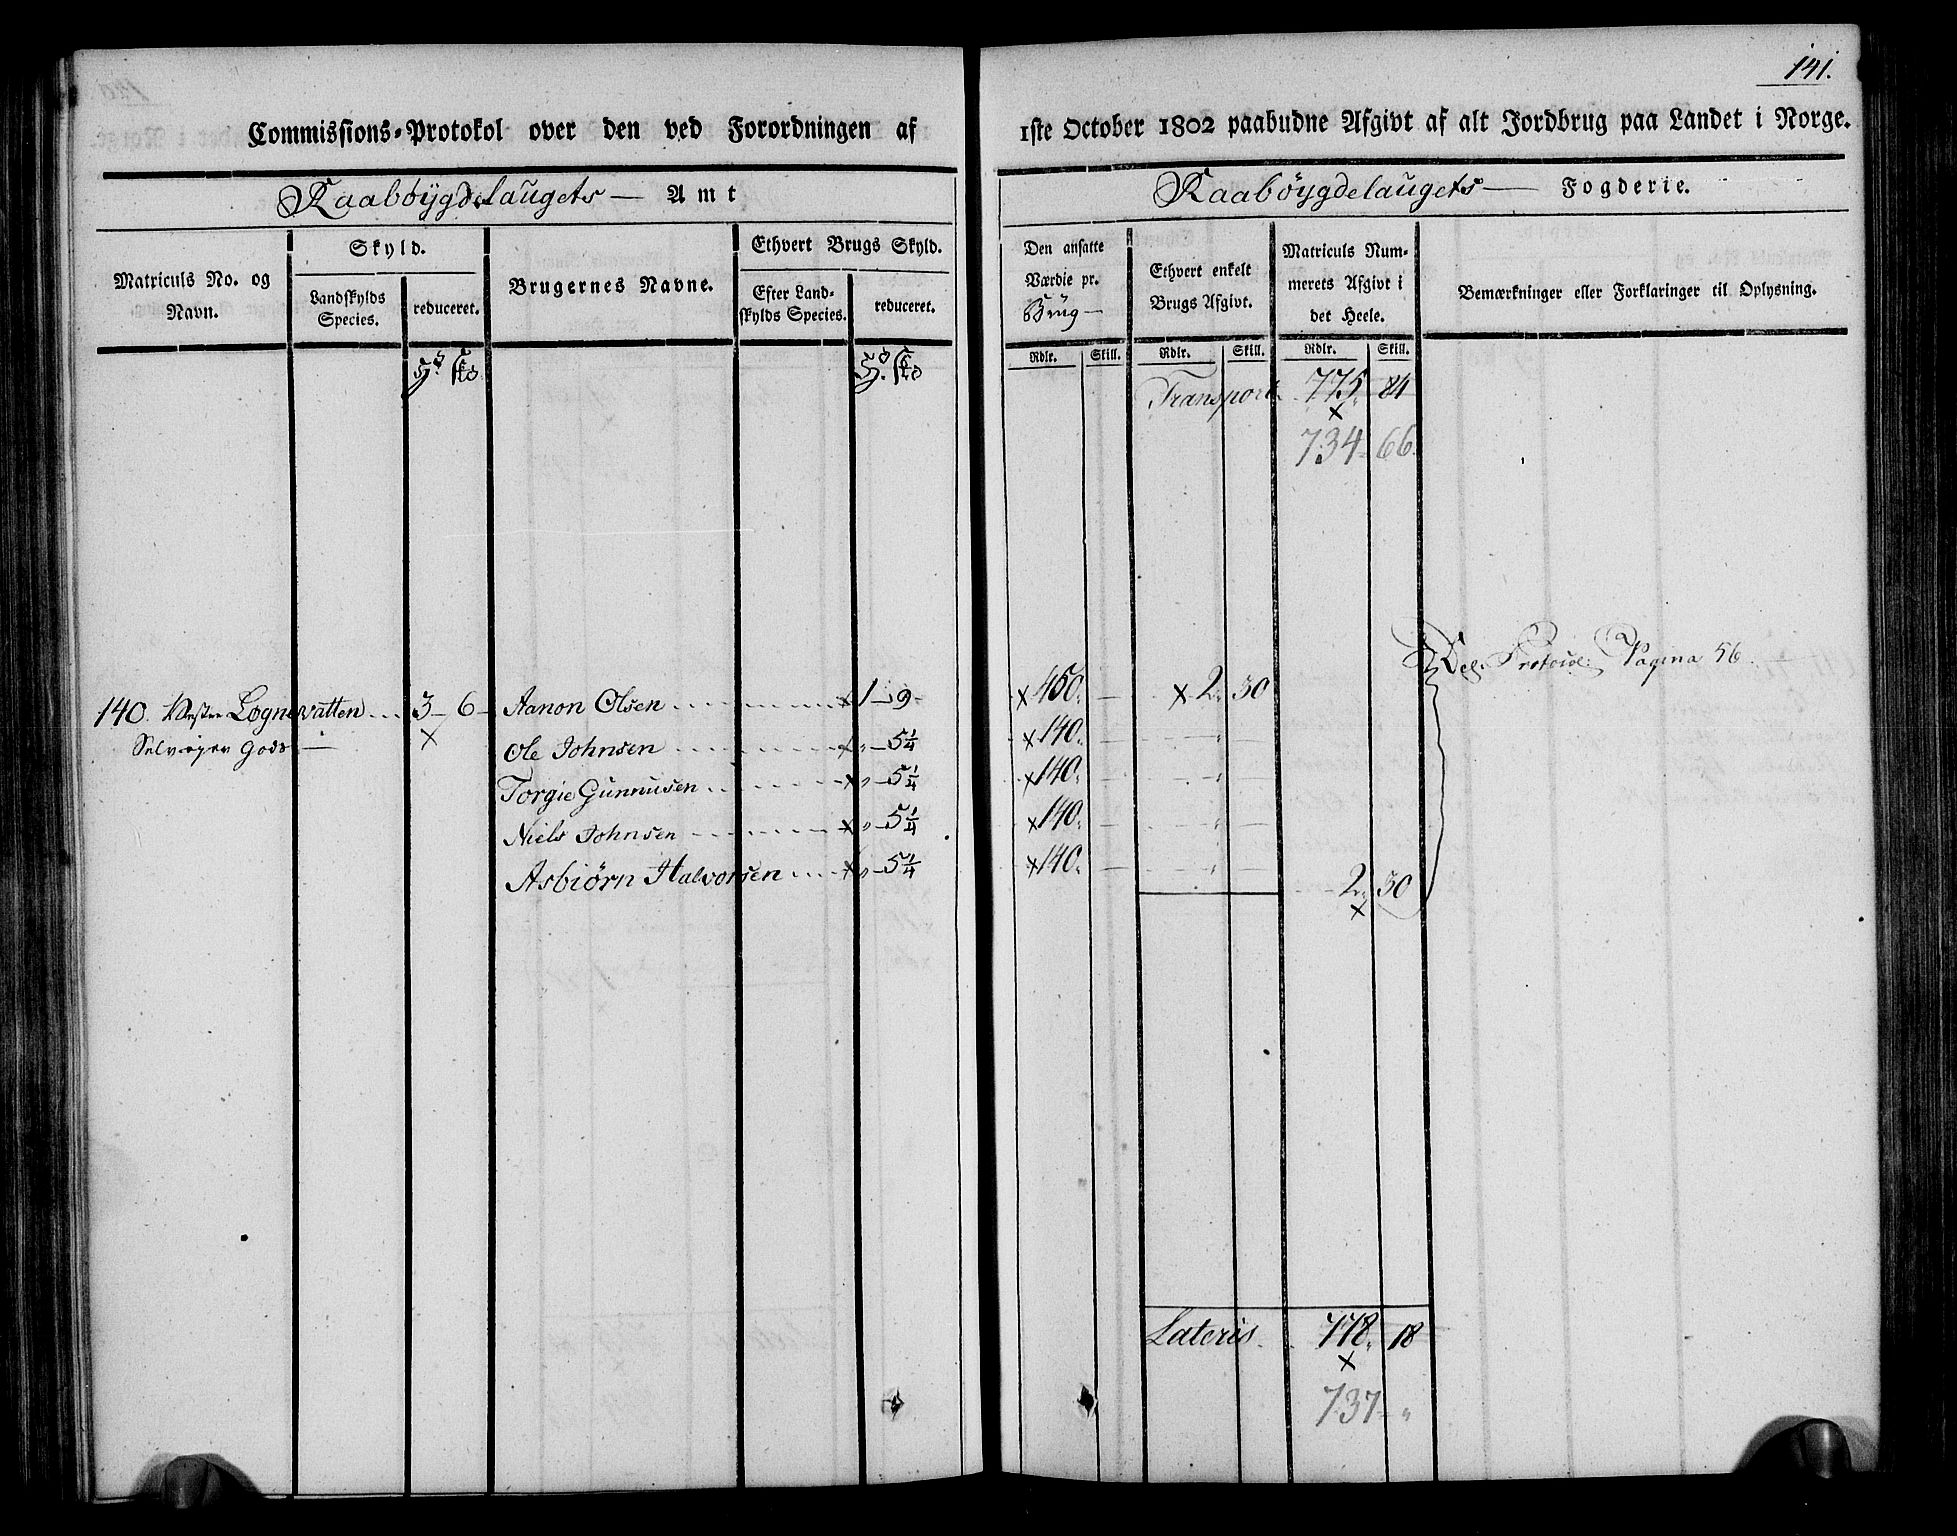 141.
Commissions-Protokol over den ved Forordningen af 1ste October 1802 paabudne Afgivt af alt Jordbrug paa Landet i Norge.
Raabøygdelaugets — Amt
Raabøygdelaugets — Fogderie.
Matriculs No. og Navn.
Skyld.
Landskylds Species.
reduceret.
Brugernes Navne.
Ethvert Brugs Skyld.
Efter Landskylds Species.
reduceret.
Den ansatte Værdie pr. Brug
Ethvert enkelt Brugs Afgivt.
Matriculs Nummerets Afgivt i det Heele.
Bemærkninger eller Forklaringer til Oplysning.
Rdlr. Skill. Rdlr. Skill. Rdlr. Skill.
Transport 775 84
734 66
Del. Protocol. Pagina 56.
140. Vestre Løgnevatten 3 - 6 Aanon Olsen x 1 - 9 x 450. — x 2. 30
Selveyer Gods — x Ole Johnsen x „ - 5 1/4 x 140. — „ —
Torgie Gunnusen x „ - 5 1/4 x 140. — „ —
Niels Johnsen x „ - 5 1/4 x 140. — „ —
Asbiørn Halvorsen x „ - 5 1/4 x 140. — „ —
2. 30
x
Lateris 778. 18
x
737 - „